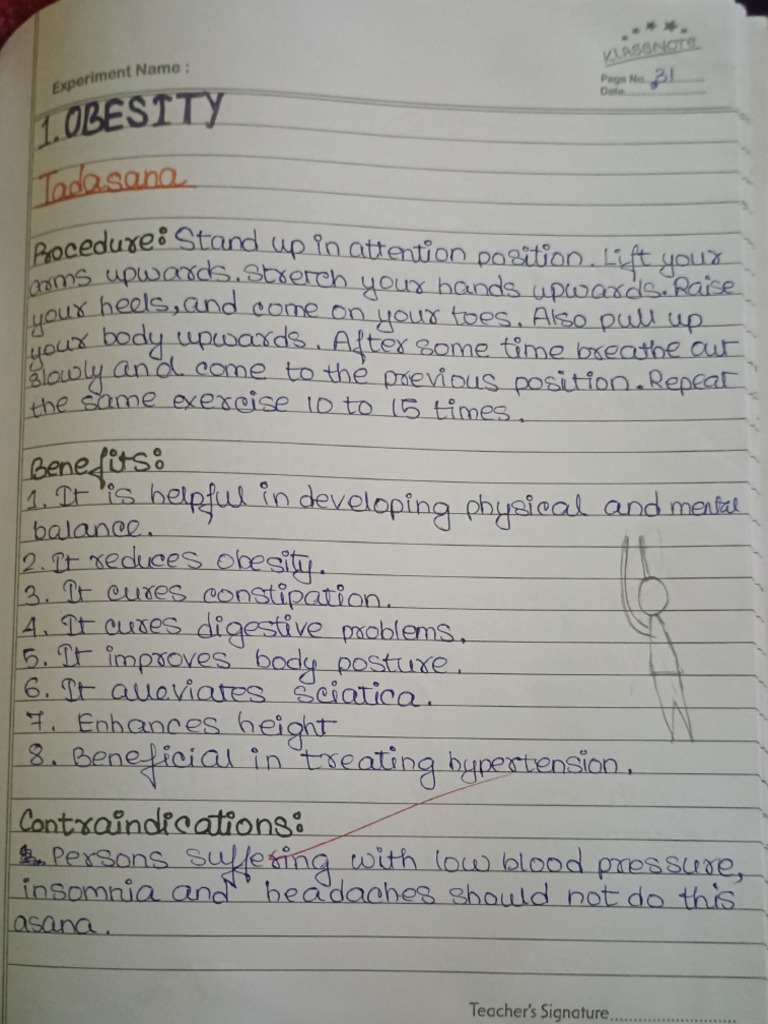 KLASSNOTE
Experiment Name :
Page No. 31
Date
1. OBESITY
Tadasana
Procedure: Stand up in attention position. Lift your
arms upwards. Stretch your hands upwards. Raise
your heels, and come on your toes. Also pull up
your body upwards. After some time breathe out
slowly and come to the previous position. Repeat
the same exercise 10 to 15 times.
Benefits:
1. It is helpful in developing physical and mental
balance.
2. It reduces obesity.
3. It cures constipation.
4. It cures digestive problems.
5. It improves body posture.
6. It alleviates sciatica.
7. Enhances height
8. Beneficial in treating hypertension.
Contraindications:
Persons suffering with low blood pressure,
insomnia and headaches should not do this
asana.
Teacher's Signature